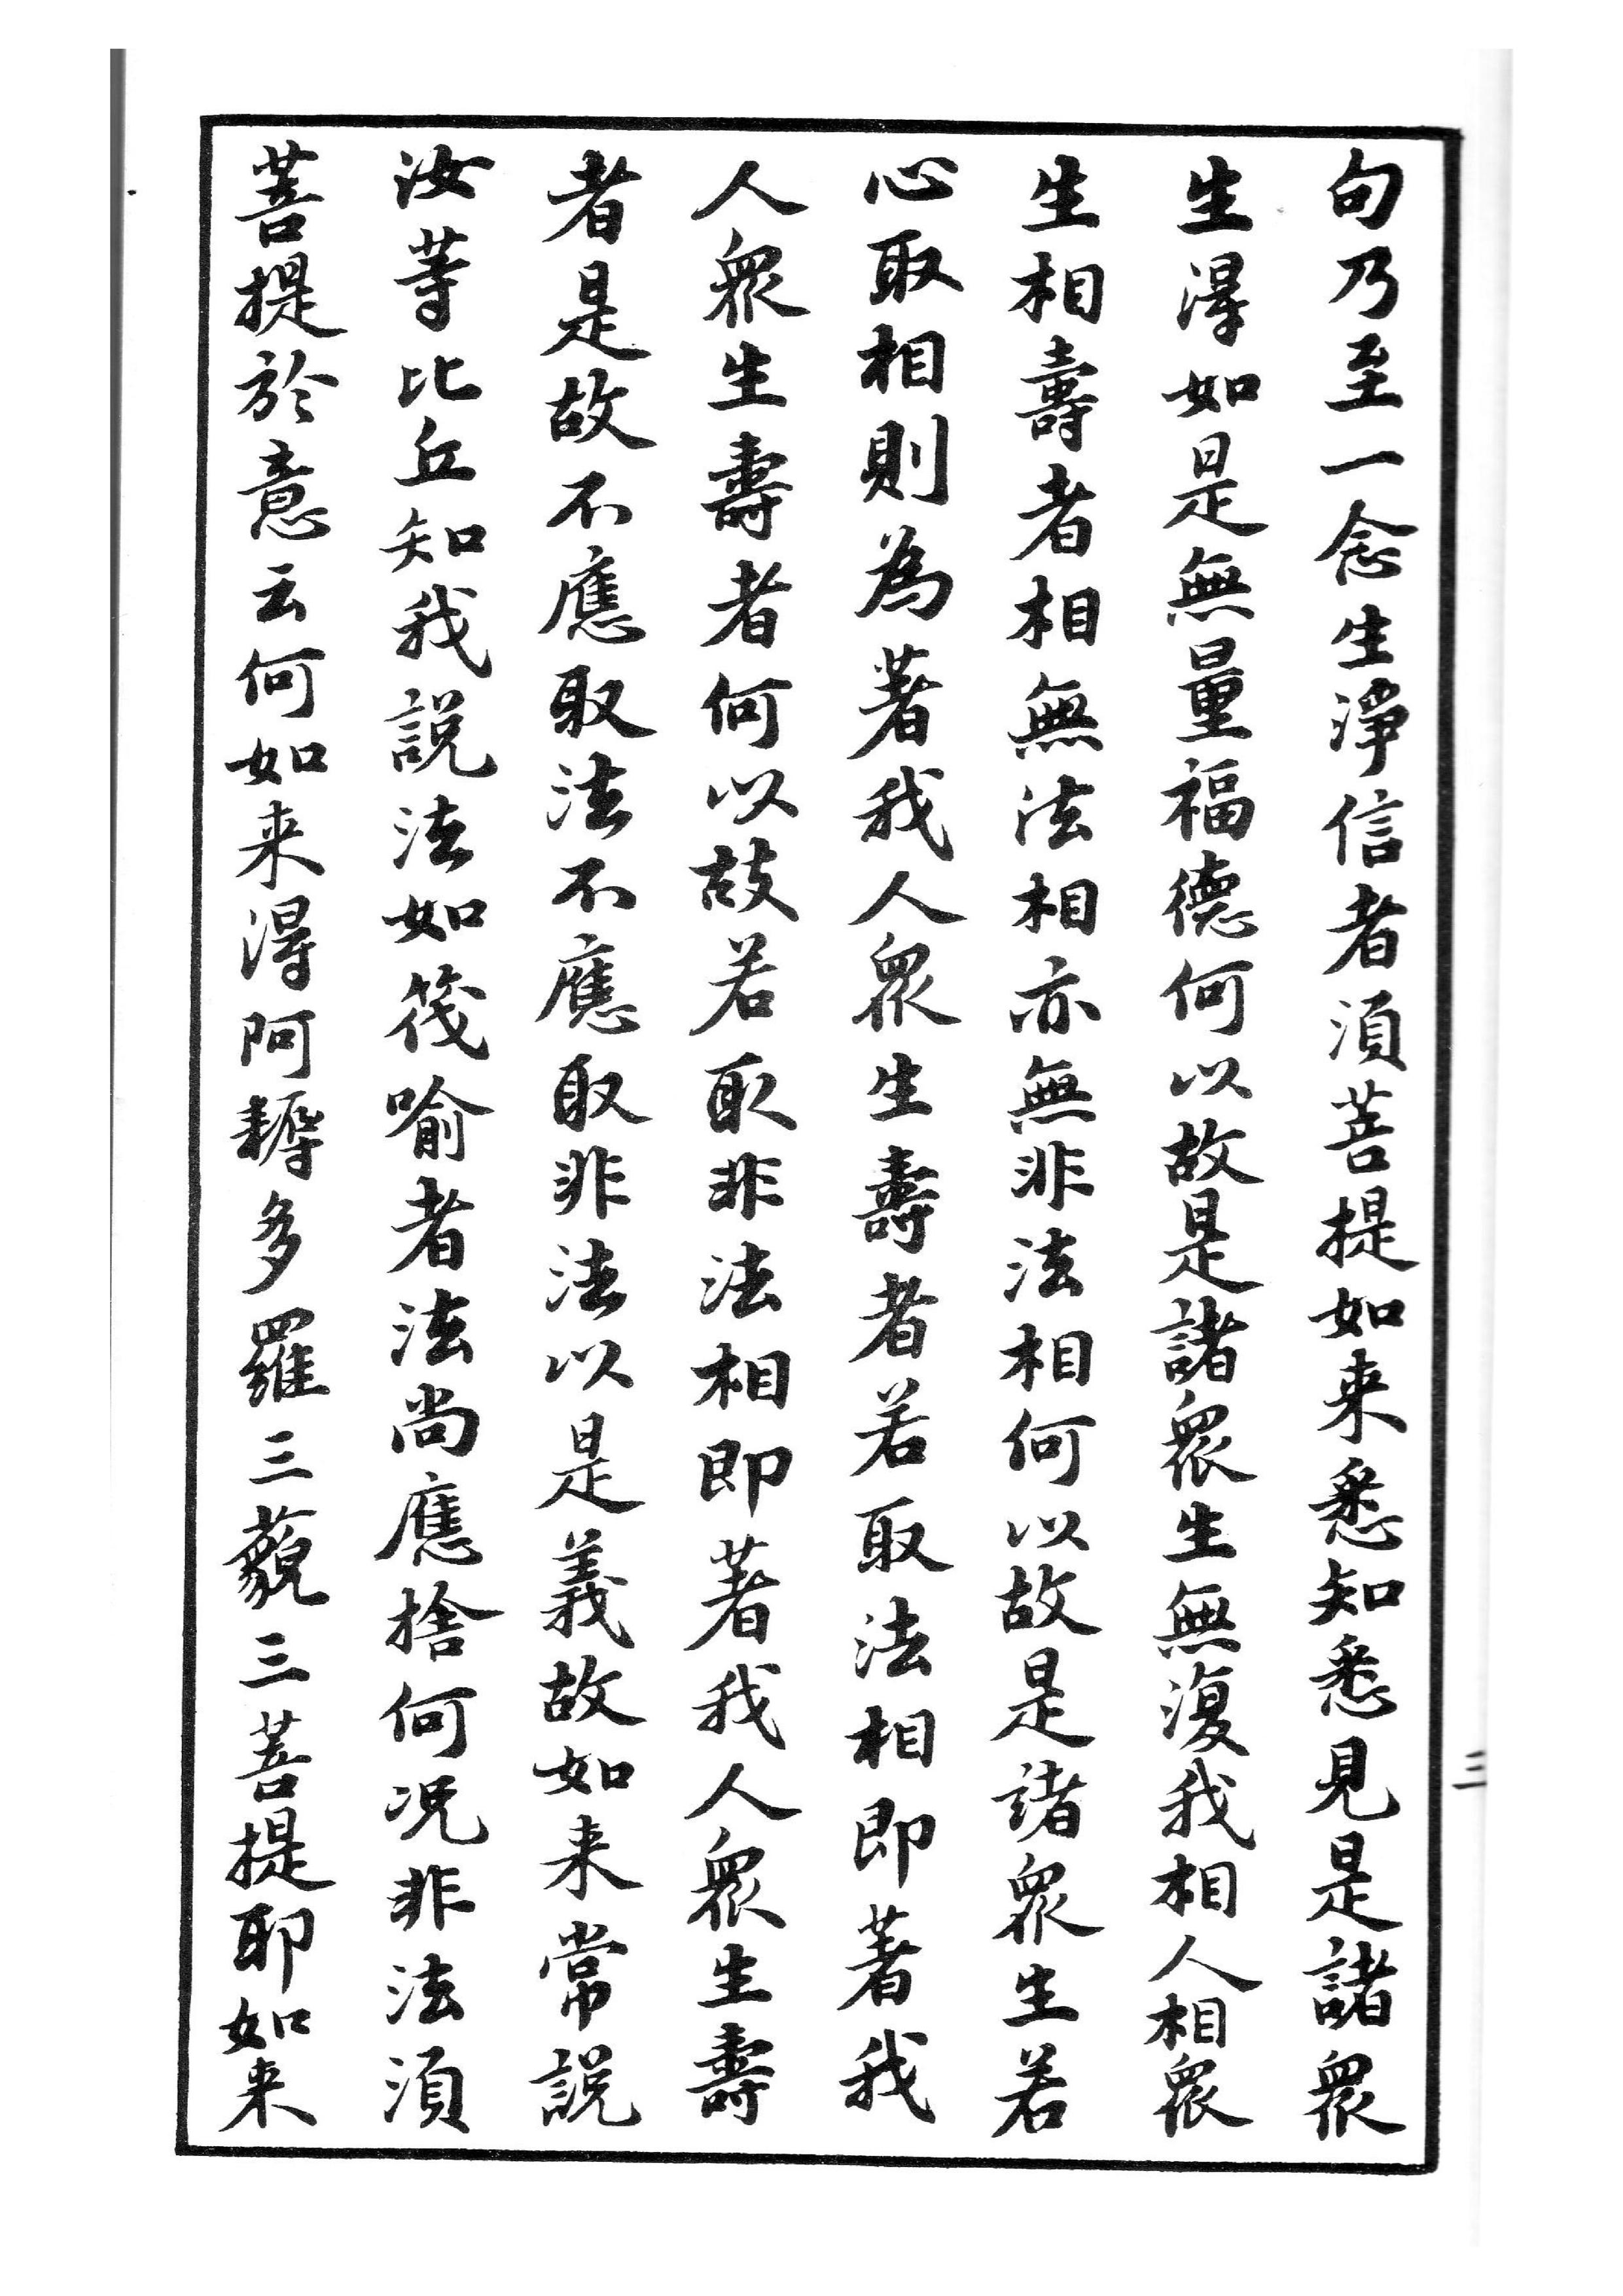 句乃至一念生淨信者須菩提如来悉知悉見是諸衆
生得如是無量福德何以故是諸衆生無復我相人相衆
生相壽者相無法相亦無非法相何以故是諸衆生若
心取相則為著我人衆生壽者若取法相即著我
人衆生壽者何以故若取非法相即著我人衆生壽
者是故不應取法不應取非法以是義故如来常説
汝等比丘知我説法如筏喻者法尚應捨何况非法須
菩提於意云何如来得阿耨多羅三藐三菩提耶如来
三